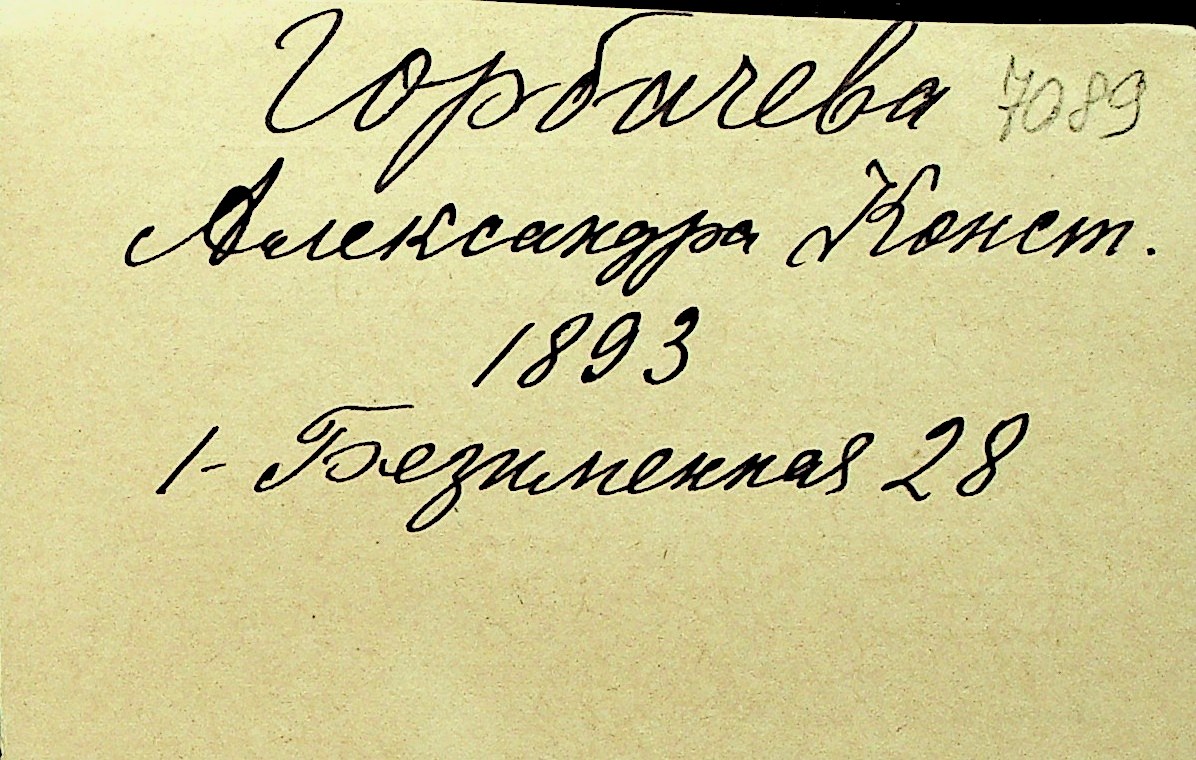 Горбачева 7089
Александра Конст.
1893
1-Безименная 28